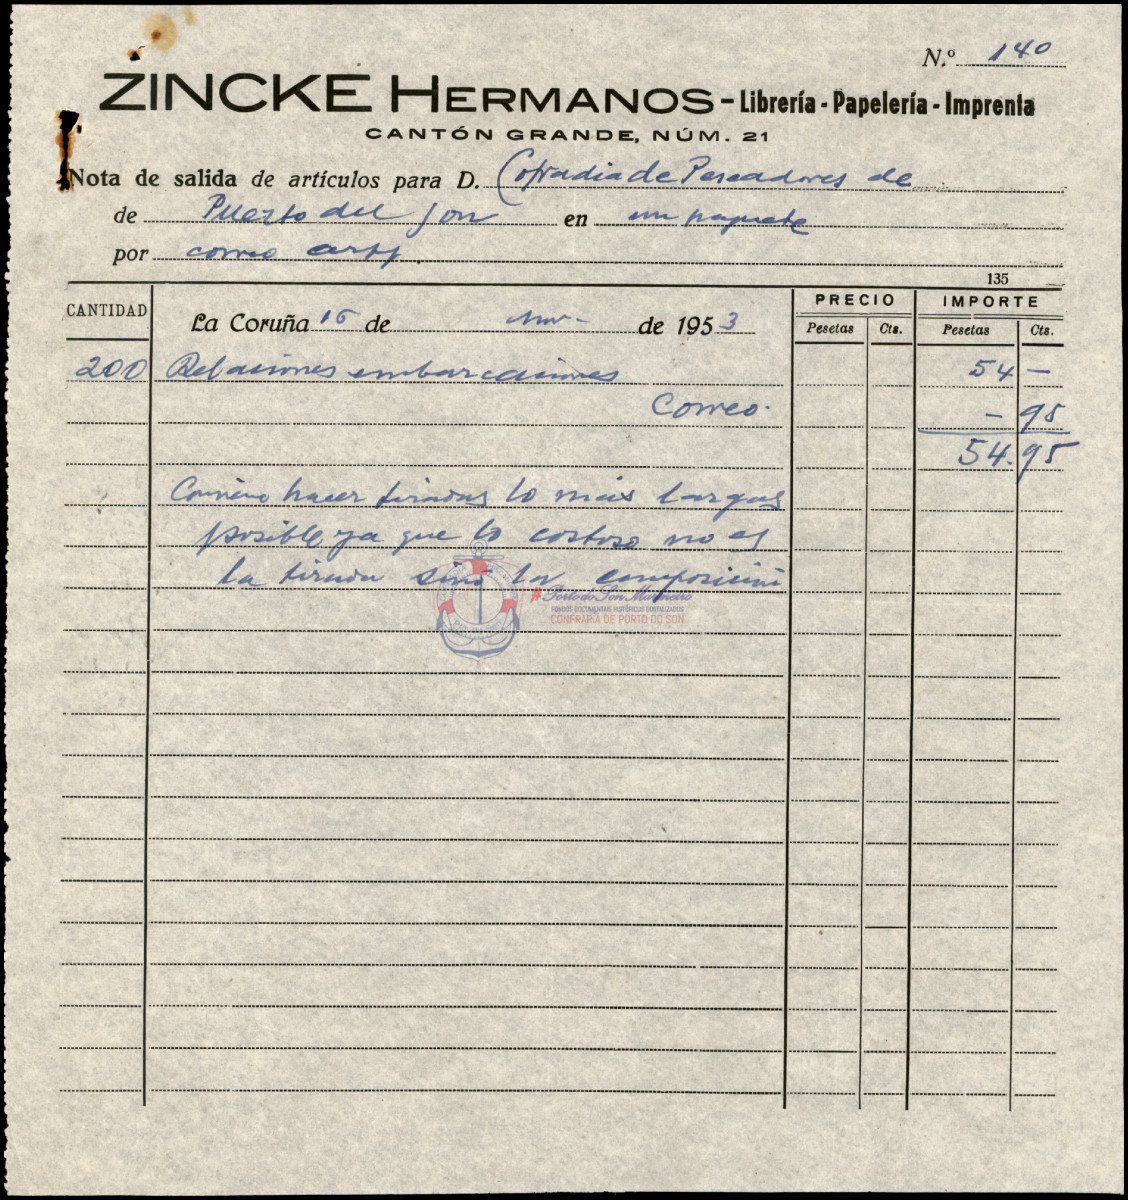 N.º 140
ZINCKE HERMANOS - Librería - Papelería - Imprenta
CANTÓN GRANDE, NÚM. 21
Nota de salida de artículos para D. Cofradia de Pescadores de
de Puerto del Son en un paquete
por correo
135
CANTIDAD La Coruña 16 de de 1953 PRECIO IMPORTE
Pesetas Cts. Pesetas Cts.
200 Relaciones embarcaciones 54 -
Correo. - 95
54.95
Conviene hacer tiradas lo más largas
posible ya que lo costoso no es
la tirada sino la composición
Porto do Son Marineiro
FONDOS DOCUMENTAIS HISTÓRICOS DIXITALIZADOS
CONFRARÍA DE PORTO DO SON